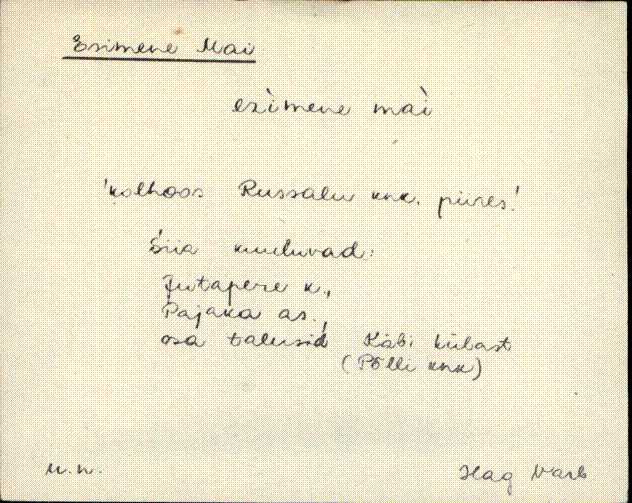 Esimene Mai
ezìmene maì
'kolhoos Russalu knk. piires'
Siia kuuluvad:
Jutapere k.,
Pajaka as.,
osa talusid Käbi külast
(Põlli knk)
M.N.
Hag Varb